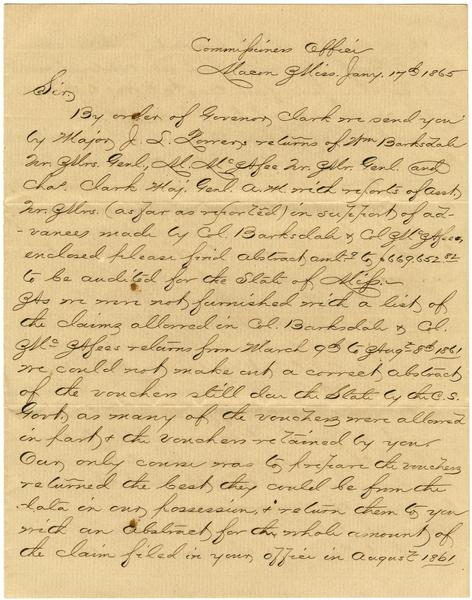 Commissioners Office
Macon Miss. Jany. 17th 1865
Sir,
By order of Govenor Clark we send you
by Major J. L. Power, returns of Wm Barksdale
Qr. Mrs. Genl, M. McAfee Qr. Mr. Genl. and
Chas. Clark Maj. Genl. A.M. with reports of Asst.
Qr. Mrs. (as far as reported) in support of ad-
vances made by Col. Barksdale & Col McAfee,
enclosed please find abstract amtg to $669,652.82
to be audited for the State of Miss.
As we were not furnished with a list of
the claims allowed in Col. Barksdale & Col.
McAfees returns from March 9th to Augt 8th 1861
we could not make out a correct abstract
of the vouchers still due the State by the C.S.
Govt, as many of the vouchers were allowed
in part & the vouchers retained by you.
Our only course was to prepare the vouchers
returned the best they could be from the
data in our possession, & return them to you
with an abstract for the whole amount of
the claim filed in your office in August 1861